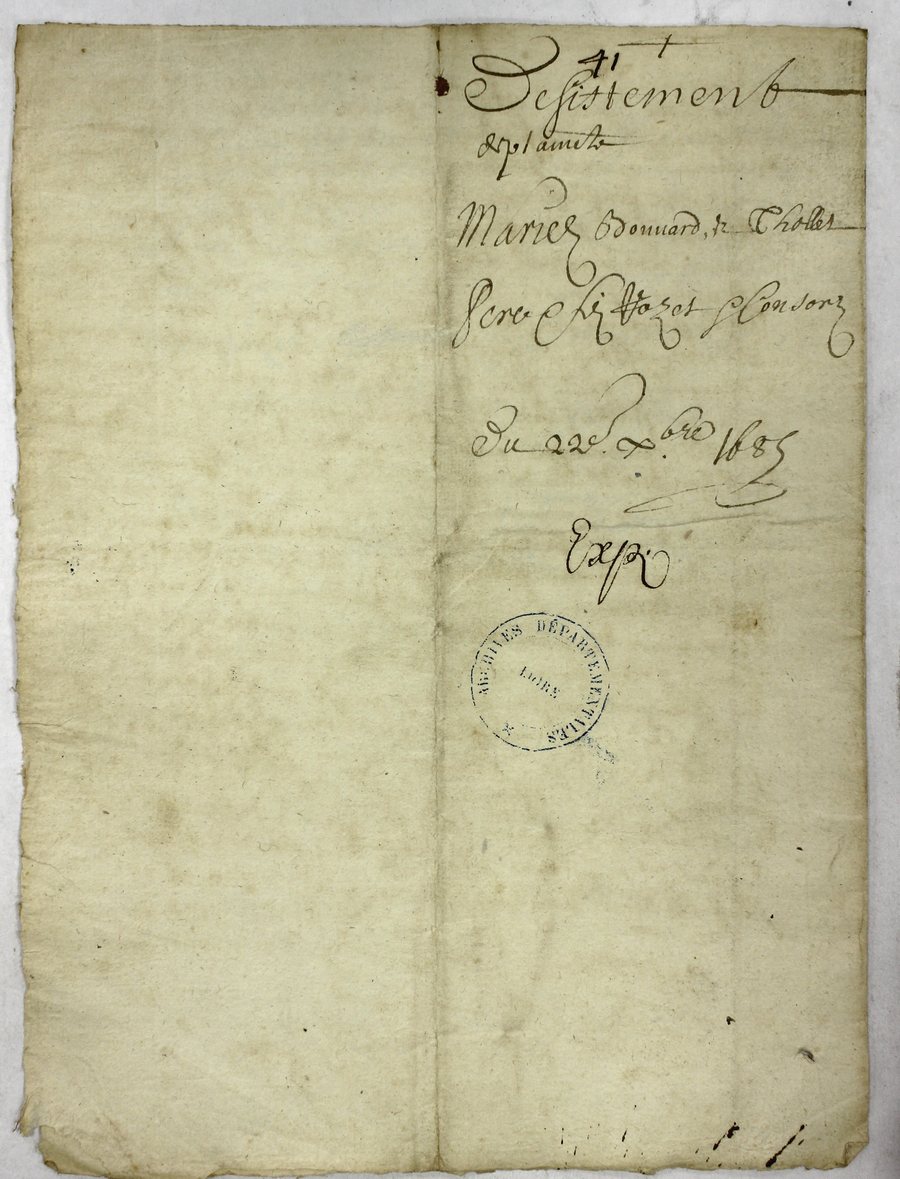 41
Desistement
de plainte
Marie Odouuard, & Thollet
Pere & fils Hozet & Consors
Du 22e. xbre 1685
Exp.
ARCHIVES DÉPARTEMENTALES
LOIRE